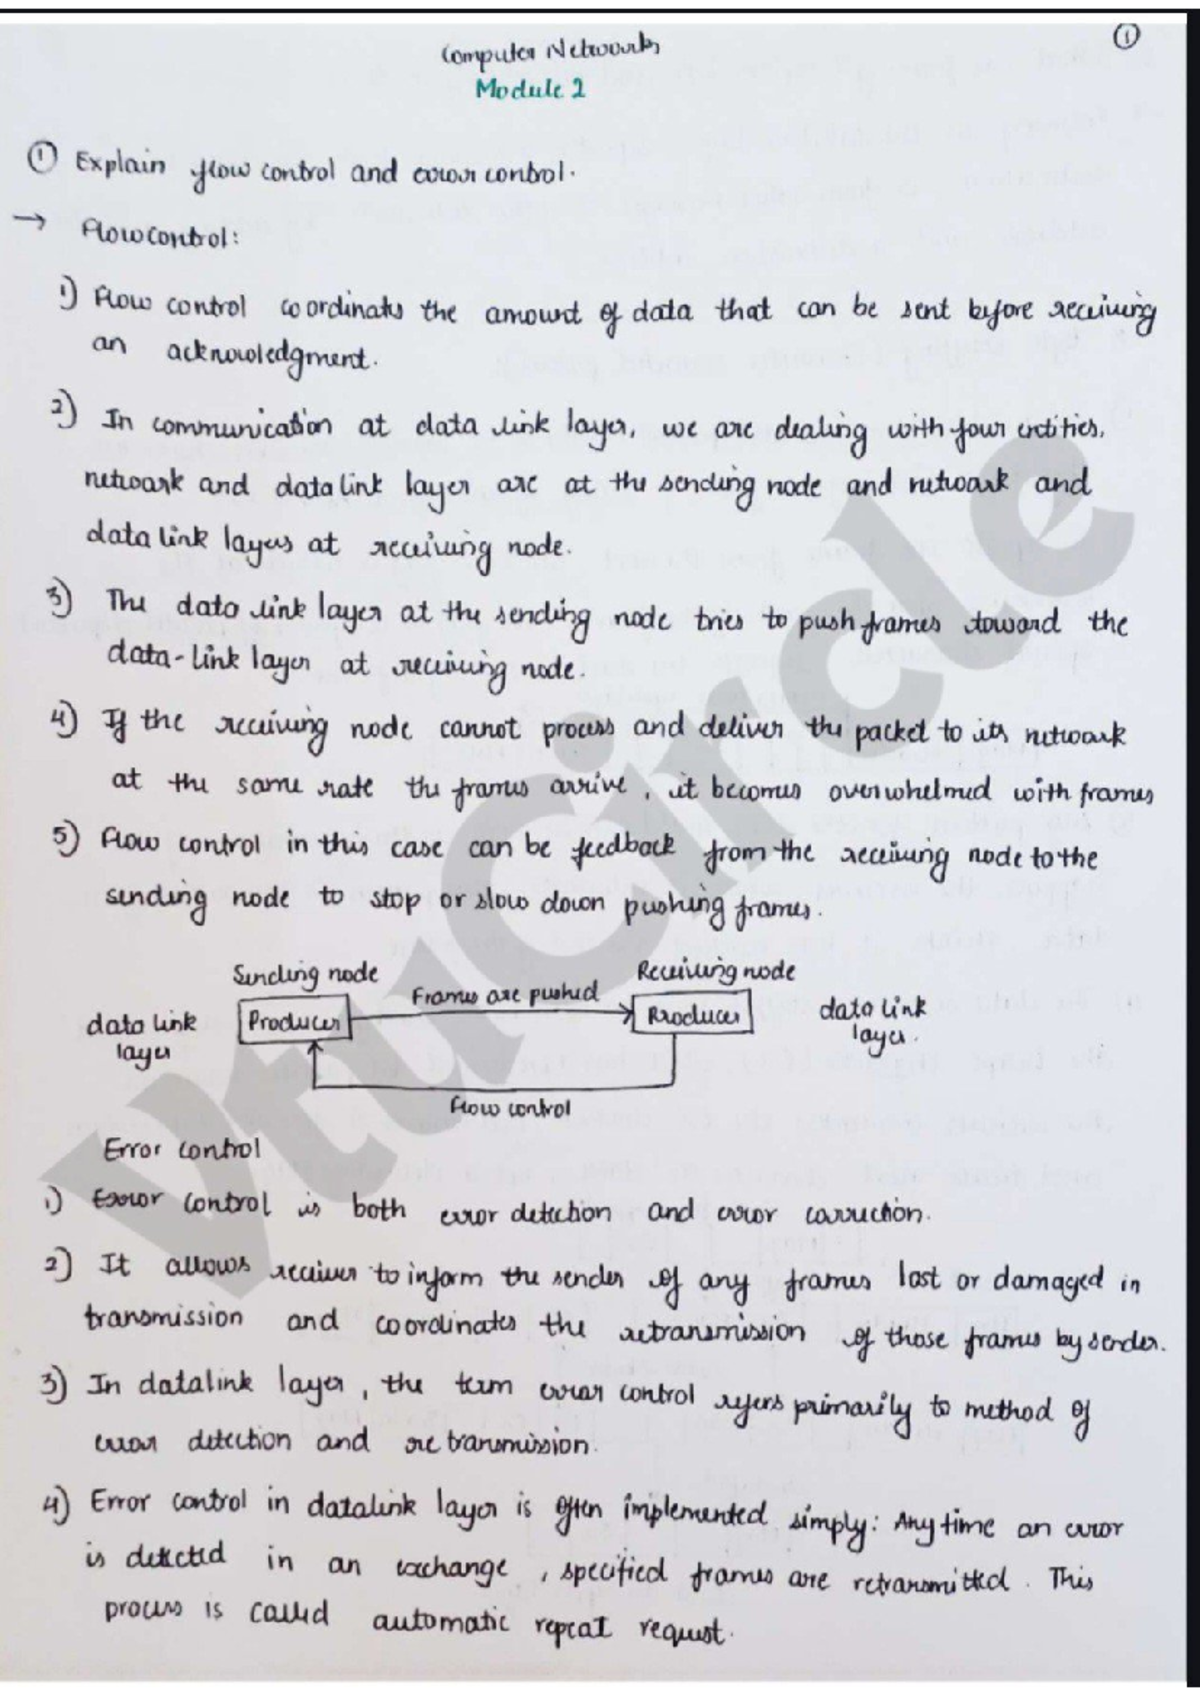 ①
Computer Networks
Module 2
① Explain flow control and error control.
→ Flow control:
1) Flow control coordinates the amount of data that can be sent before receiving
an acknowledgment.
2) In communication at data link layer, we are dealing with four entities,
network and data link layer are at the sending node and network and
data link layers at receiving node.
3) The data link layer at the sending node tries to push frames toward the
data-link layer at receiving node.
4) If the receiving node cannot process and deliver the packet to its network
at the same rate the frames arrive, it becomes overwhelmed with frames
5) Flow control in this case can be feedback from the receiving node to the
sending node to stop or slow down pushing frames.
Sending node Receiving node
Frames are pushed
data link Producer Producer data link
layer layer.
Flow control
Error control
1) Error control is both error detection and error correction.
2) It allows receiver to inform the sender of any frames lost or damaged in
transmission and coordinates the retransmission of those frames by sender.
3) In datalink layer, the term error control refers primarily to method of
error detection and retransmission.
4) Error control in datalink layer is often implemented simply: Any time an error
is detected in an exchange, specified frames are retransmitted. This
process is called automatic repeat request.
VtuCircle